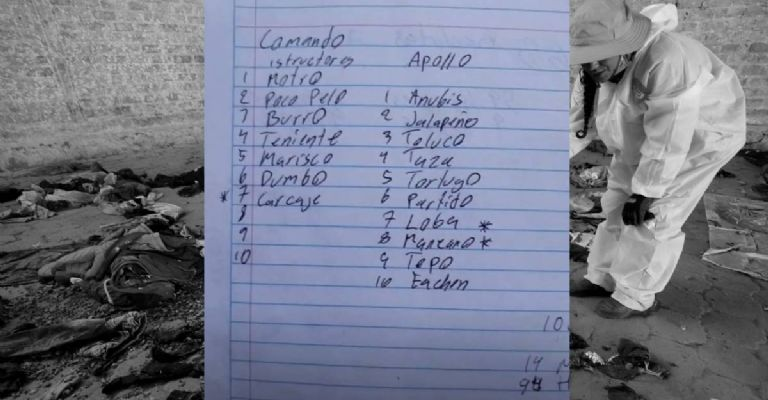 Comando
istructores
1 Motro
2 Poco Pelo
7 Burro
4 Teniente
5 Marisco
6 Dumbo
* 7 Carcaje
8
9
10
Apollo
1 Anubis
2 Jalapeño
3 Toluco
4 Taza
5 Tortugo
6 Partido
7 Loba *
8 Manzano *
9 Topo
10
10
14